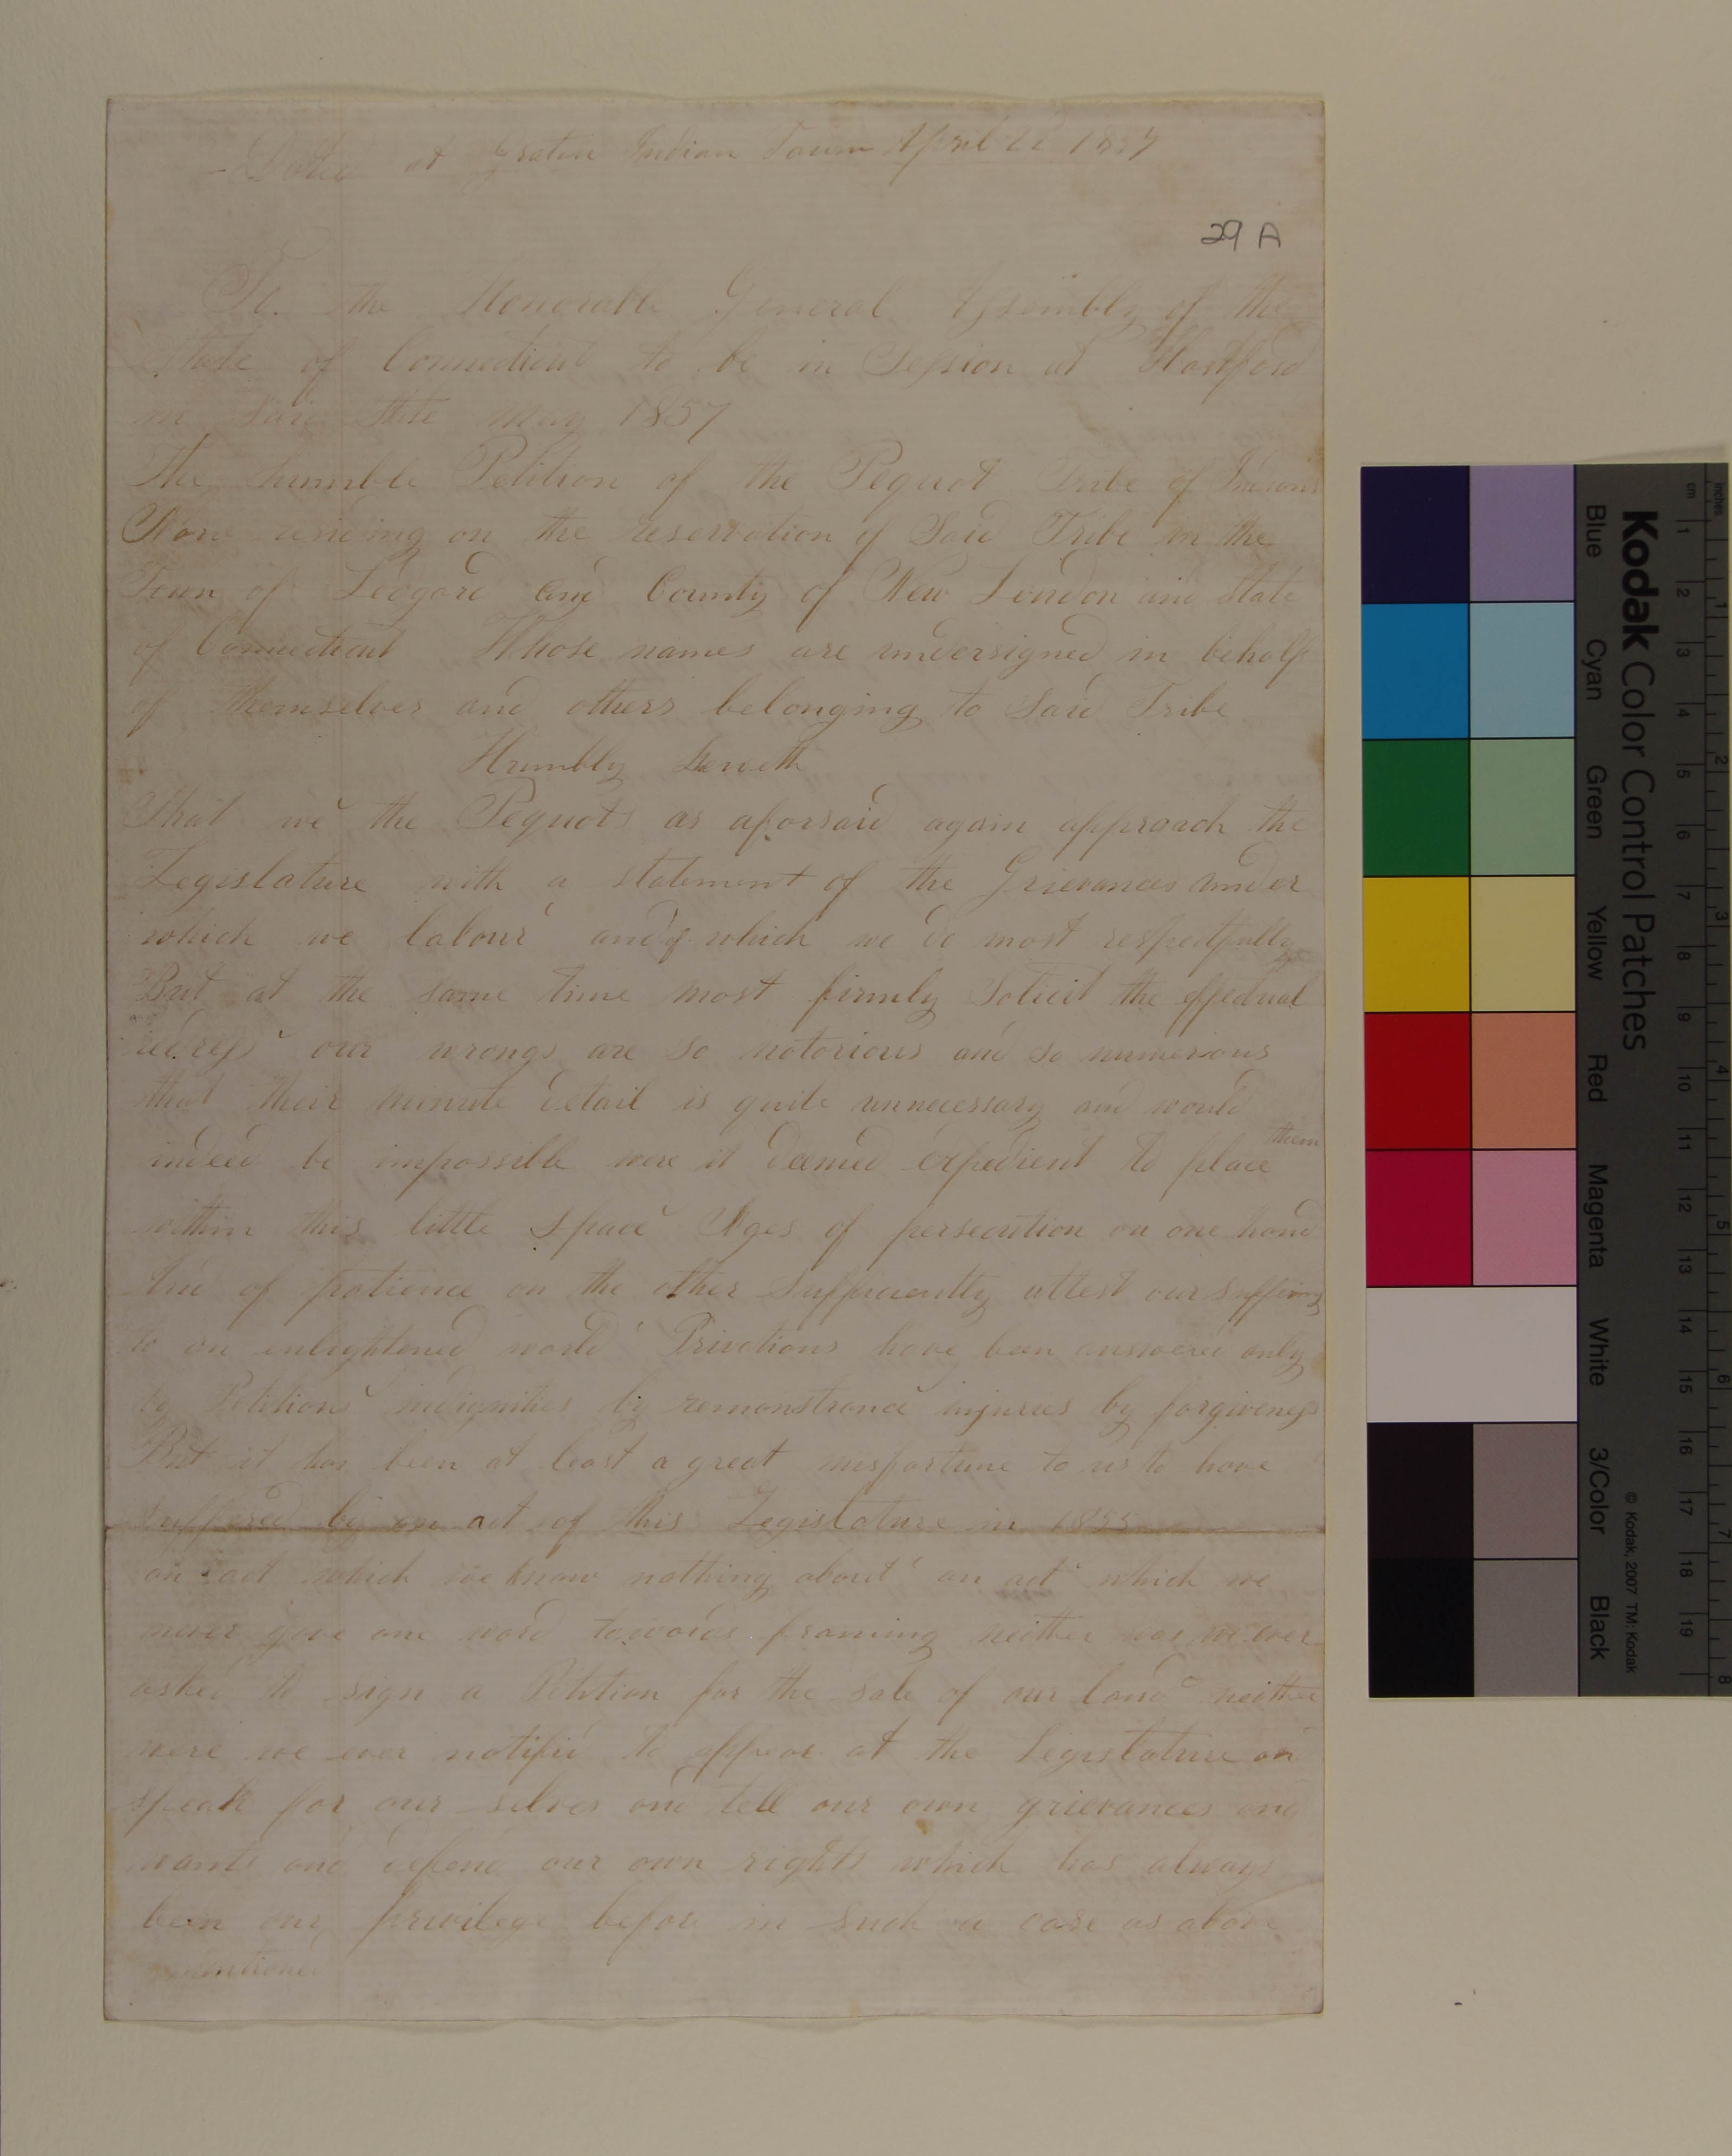 Dated at Groton Indian Town April 22 1857
29 A
To the Honorable General Assembly of the
State of Connecticut to be in Session at Hartford
in Said State May 1857
The humble Petition of the Pequot Tribe of Indians
Now residing on the reservation of Said Tribe in the
Town of Ledyard and County of New London and State
of Connecticut Whose names are undersigned in behalf
of themselves and others belonging to Said Tribe
Humbly Seweth
That we the Pequots as aforsaid again approach the
Legislature with a statement of the Grievances under
which we labour and of which we do most respectfully
But at the same time most firmly Solicit the effectual
redress our wrongs are so notorious and so numerious
that their minute detail is quite unnecessary and would
indeed be impossible were it deemed expedient to place them
within this little Space Ages of persecution on one hand
And of patience on the other Sufficiently attest our suffring
to an enlightened world Privations have been answered only
by Petitions indignities by remonstrance injuries by forgiveness
But it has been at least a great misfortune to us to have
suffered by an act of this Legislature in 1855
an act which we know nothing about an act which we
never gave one word towards framing neither was we ever
asked to sign a Petition for the sale of our land neither
were we ever notified to appear at the Legislature and
speak for our selves and tell our own grievances and
wants and defend our own rights which has always
been our privilege before in such a case as above
mentioned
Kodak Color Control Patches
Blue Cyan Green Yellow Red Magenta White 3/Color Black
© Kodak, 2007 TM: Kodak
inches 1 2 3 4 5 6 7 8
cm 1 2 3 4 5 6 7 8 9 10 11 12 13 14 15 16 17 18 19